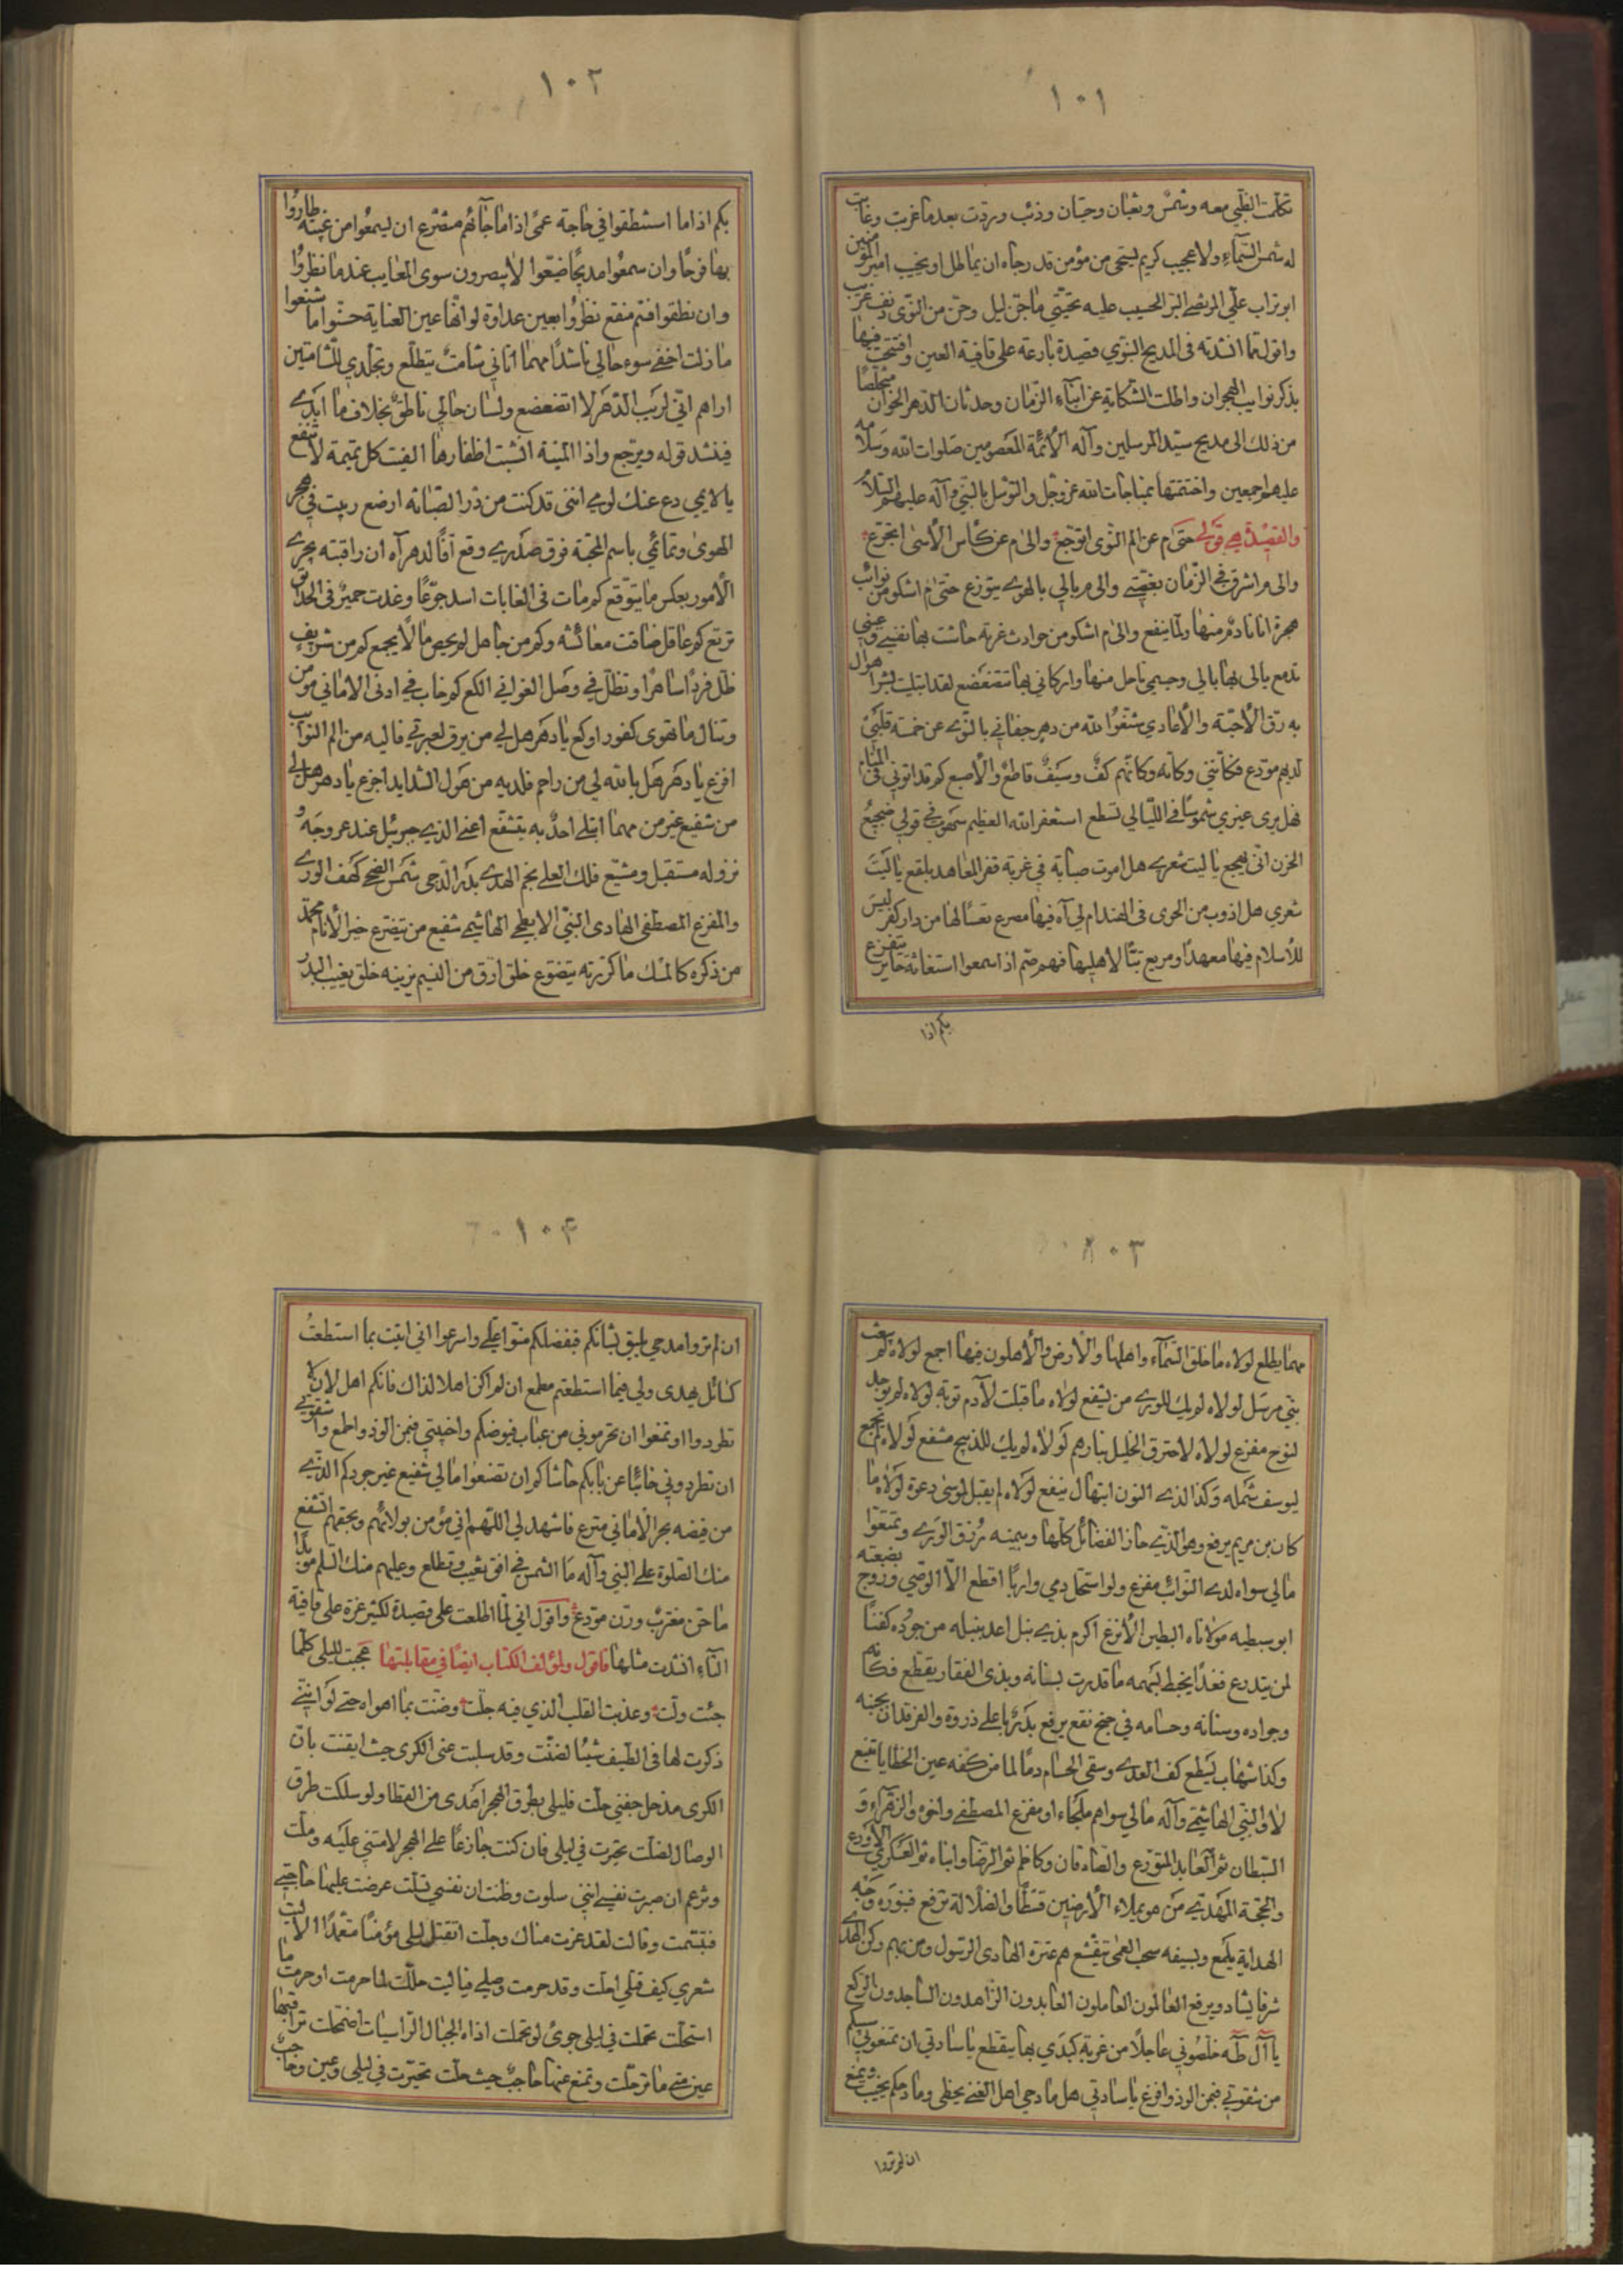 ١٠١
تكلمت الظبي معه وشمس وثعبان وحيتان وذئب وردت بعدما غربت وغابت
له شمس السماء ولا عجيب كريم يستحي من مؤمن قد رجاه ان يماطل او يخيب امير المؤمنين
ابو تراب علي المرتضى البر الحسيب عليه تحيتي ما جن ليل وحن من النوى دنف غريب
واقول مما انشدته في المديح النبوي قصيدة بارعة على قافية العين وافتتحت فيها
بذكر نوايب الهجران واطلت الشكاية عن ابناء الزمان وحدثان الدهر الخوان متخلصا
من ذلك الى مديح سيد المرسلين وآله الأئمة المعصومين صلوات الله وسلامه
عليهم اجمعين واختتمتها بمناجات الله عز وجل والتوسل بالنبي وآله عليهم السلام
والقصيدة هي قولي حتى م عن الم النوى اتوجع والى م عن كأس الأسى اتجرع
والى م اشرق في الزمان بغصتي والى م بالي بالهوى يتوزع حتى م اشكو من نوائب
هجرة انا نادم منها ولما ينفع والى م اشكو من حوادث غربة جاشت بها نفسي وعيني
تدمع بالى بها بالي وجسمي ناحل منها واركاني بها تتضعضع لقد ابتليت بشر اهوال
به رق الأحبة والأعادي شنعوا لله من دهر جفاني بالنوى عن خمسة قلبي
لديهم مودع فكأنني وكأنه وكأنهم كف وسيف قاطع والأصبع كم قد اتوني في المنام
فهل يرى غيري شموسا في الليالي تسطع استغفر الله العظيم سهوت في قولي ضجيع
الحزن انى يهجع يا ليت شعري هل اموت صبابة في غربة قفر المعاهد بلقع يا ليت
شعري هل اذوب من الجوى في الهند ام لي آه فيها مصرع تعسا لها من دار كفر ليس
للأسلام فيها معهد او مربع تبا لاهليها فهم صم اذا سمعوا استغاثة حاير يتفزع
بكم اذا
١٠٢
بكم اذا ما استنطقوا في حاجة عمي اذا ما جاءهم متضرع ان يسمعوا من غيبة طاروا
بها فرحا وان سمعوا مديحا ضيعوا لا يبصرون سوى المعايب عندما نظروا
وان نطقوا فثم منقع نظروا بعين عداوة لو انها عين العناية حسنوا ما شنعوا
ما زلت اخفي سوء حالي ناشدا مهما اتاني شامت يتطلع وتجلدي للشامتين
اراهم اني لريب الدهر لا اتضعضع ولسان حالي ناطق بخلاف ما ابدي
فينشد قوله ويرجع واذا المنية انشبت اظفارها الفيت كل تميمة لا تنفع
يا لايمي دع عنك لومي انني قد كنت من در الصبابة ارضع ربيت في حجر
الهوى وتمائمي باسم المحبة فوق صدري وقع آفا لدهر آه ان راقبته يجري
الأمور بعكس ما يتوقع كم مات في الغابات اسد جوعا وغدت حمير في الحدائق
ترتع كم عاقل ضاقت معائشه وكم من جاهل لم يحص مالا يجمع كم من شريف
ظل فردا ساهرا وتظل في وصل الغواني الكع كم خاب في ادنى الاماني مؤمن
وتنال ما تهوى كفور اوكع يا دهر هل لي من يرق لعبرتي فاليه من الم النوائب
افزع يا دهر هل بالله لي من راحم فلديه من هول الشدايد اجزع يا دهر هل لي
من شفيع غير من مهما ابتلي احد به يتشفع اعني الذي جبريل عند عروجه و
نزوله مستقبل ومشيع فلك العلى نجم الهدى بدر الدجى شمس الضحى كهف الورى
والمفزع المصطفى الهادي النبي الابطحي الهاشمي شفيع من يتضرع خير الأنام محمد
من ذكره كالمسك ما كررته يتضوع خلق ارق من النسيم يزينه خلق يغيب البدر
١٠٣
مهما يطلع لولاه ما خلق السماء واهلها والأرض والأهلون فيها اجمع لولاه لم يبعث
نبي مرسل لولاه لم يك للورى من يشفع لولاه ما قبلت لآدم توبة لولاه لم يوجد
لنوح مفزع لولاه لاحترق الخليل بنارهم لولاه لم يك للذبيح مشفع لولاه لم يجمع
ليوسف شمله وكذا لذي النون ابتهال ينفع لولاه لم يقبل لموسى دعوة لولاه ما
كان بن مريم يرفع وهو الذي حاز الفضائل كلها وبيمنه رزق الورى وتمتعوا
مالي سواه لدى النوائب مفزع ولو استحل دمي واربا اقطع الا الوصي وزوج بضعته
ابو سبطيه مولانا البطين الأنزع اكرم بذي نبل اعد بنبله من جوده كفنا
لمن يتدرع فغدا يخيط بسهمه ما قدرت بسنانه وبذي الفقار يقطع فكأنه
وجواده وسنانه وحسامه في جنح نقع يرفع بدر باعلى ذروة والفرقدان بجنبه
وكذا شهاب يسطع كف العدى وسقى الحسام دما لما من كفه عين الخطايا تنبع
لا والنبي الهاشمي وآله مالي سواهم ملجأ او مفزع المصطفى واخوه والزهراء و
السبطان ثم العابد المتورع والصادقان وكاظم ثم الرضا وابناه ثم العسكري الأورع
والحجة المهدي من هو يملاء الأرضين قسطا والضلالة ترفع فبنوره وجه
الهداية يلمع وبسيفه سحب العمى تتقشع هم عترة الهادي الرسول ومن بهم ركن الهدى
شرفا يشاد ويرفع العالمون العاملون العابدون الزاهدون الساجدون الركع
يا آل طه خلصوني عاجلا من غربة كبدي بها يتقطع يا سادتي ان تمنعوني سيبكم
من شقوتي فبمن الوذ وافزع يا سادتي هل مادحي اهل الغنى يحظى ومادحكم يخيب ويمنع
ان لم تروا
١٠٤
ان لم تروا مدحي يليق بشانكم فبفضلكم منوا علي واسرعوا اني اتيت بما استطعت
كنائل يهدى ولي فيما استطعتم مطمع ان لم اكن اهلا لذاك فانكم اهل لان لا
تطردوا او تمنعوا ان تحرموني من عباب فيوضكم واخيبتي فبمن الوذ واطمع وا شقوتي
ان تطردوني خائبا عن بابكم حاشاكم ان تصنعوا مالي شفيع غير جودكم الذي
من فيضه بحر الأماني مترع فاشهد لي اللهم اني مؤمن بولائهم وبحقهم اتشفع
منك الصلوة على النبي وآله ما الشمس في افق تغيب وتطلع وعليهم منك السلم مؤبدا
ما حن مغترب ورن مودع واقول اني لما اطلعت على قصيدة لكثير عزة على قافية
التاء انشدت مثلها فاقول ولمؤلف الكتاب ايضا في مقابلتها عجبت لليلى كلما
جئت ولت وعذبت القلب الذي فيه حلت وضنت بما اهواه حتى لو انني
ذكرت لها في الطيف شيئا لضنت وقد سلبت عني الكرى حيث ايقنت بان
الكرى مذ حل جفني حلت فليلى بطرق الهجر اهدى من القطا ولو سلكت طرق
الوصال لضلت تحيرت في ليلى فان كنت جازعا على الهجر لامتني عليه وملت
وتزعم ان صبرت نفسي انني سلوت وظنت ان نفسي تسلت عرضت عليها حاجتي
فتبسمت وقالت لقد عزت مناك وجلت اتقتل ليلى مؤمنا متعمدا الا ليت
شعري كيف قتلي احلت وقد حرمت وصلي فيا ليت حللت لنا ما حرمت او حرمت ما
استحلت تحملت في ليلى جوى لو تحملت اذاه الجبال الراسيات اضمحلت تراقبها
عين متى ما ترحلت وتمنع عنها حاجب حيث حلت تحيرت في ليلى وعين وحاجب